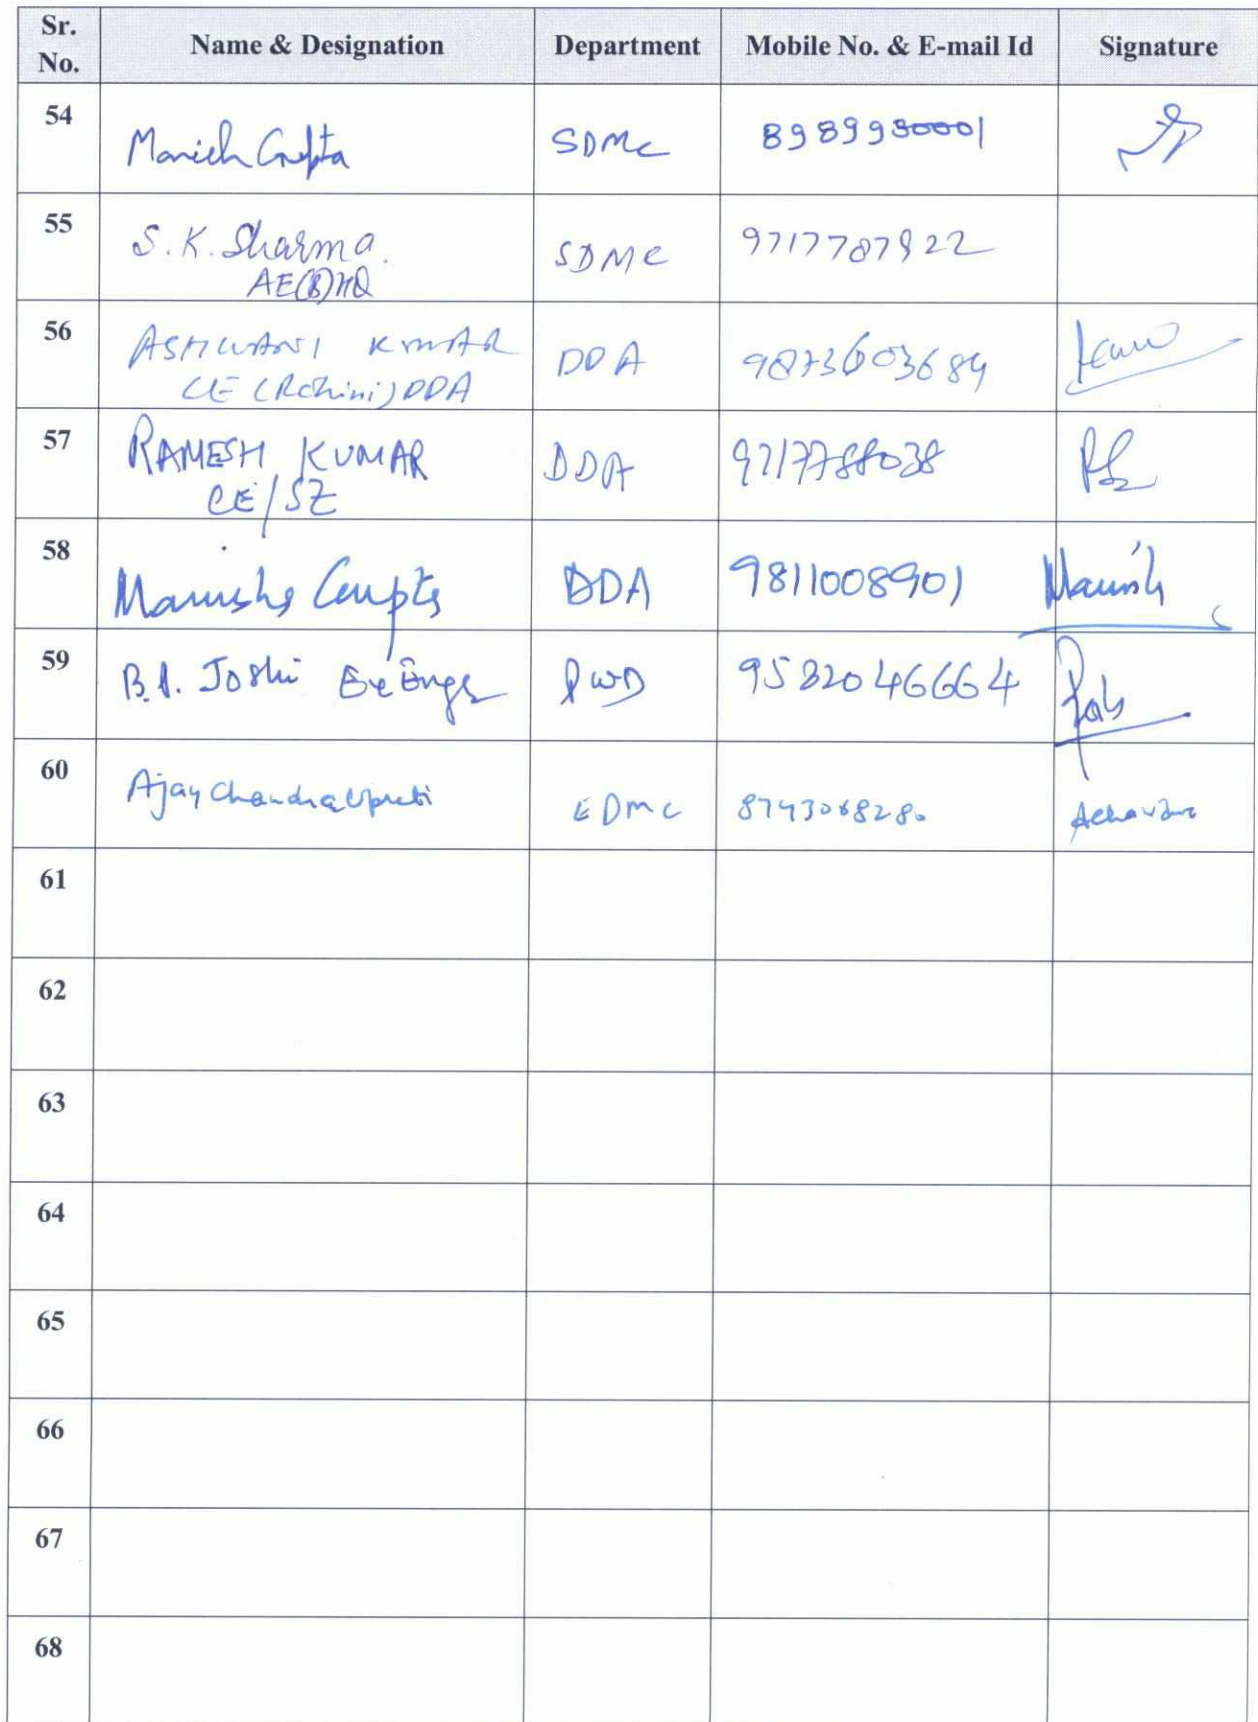 Sr. No. Name & Designation Department Mobile No. & E-mail Id Signature
54 Manish Gupta SDMC 8989980001
55 S.K. Sharma. SDMC 9717787922
AE(B)HQ
56 ASHWANI KUMAR DDA 9873603684
CE (Rohini) DDA
57 RAMESH KUMAR DDA 9717788038
CE/SZ
58 Manisha Gupta DDA 9811008901 Manish
59 Joshi Ex Engr PWD 9582046664
60 Ajay Chandra Upreti EDMC 8743068280
61
62
63
64
65
66
67
68